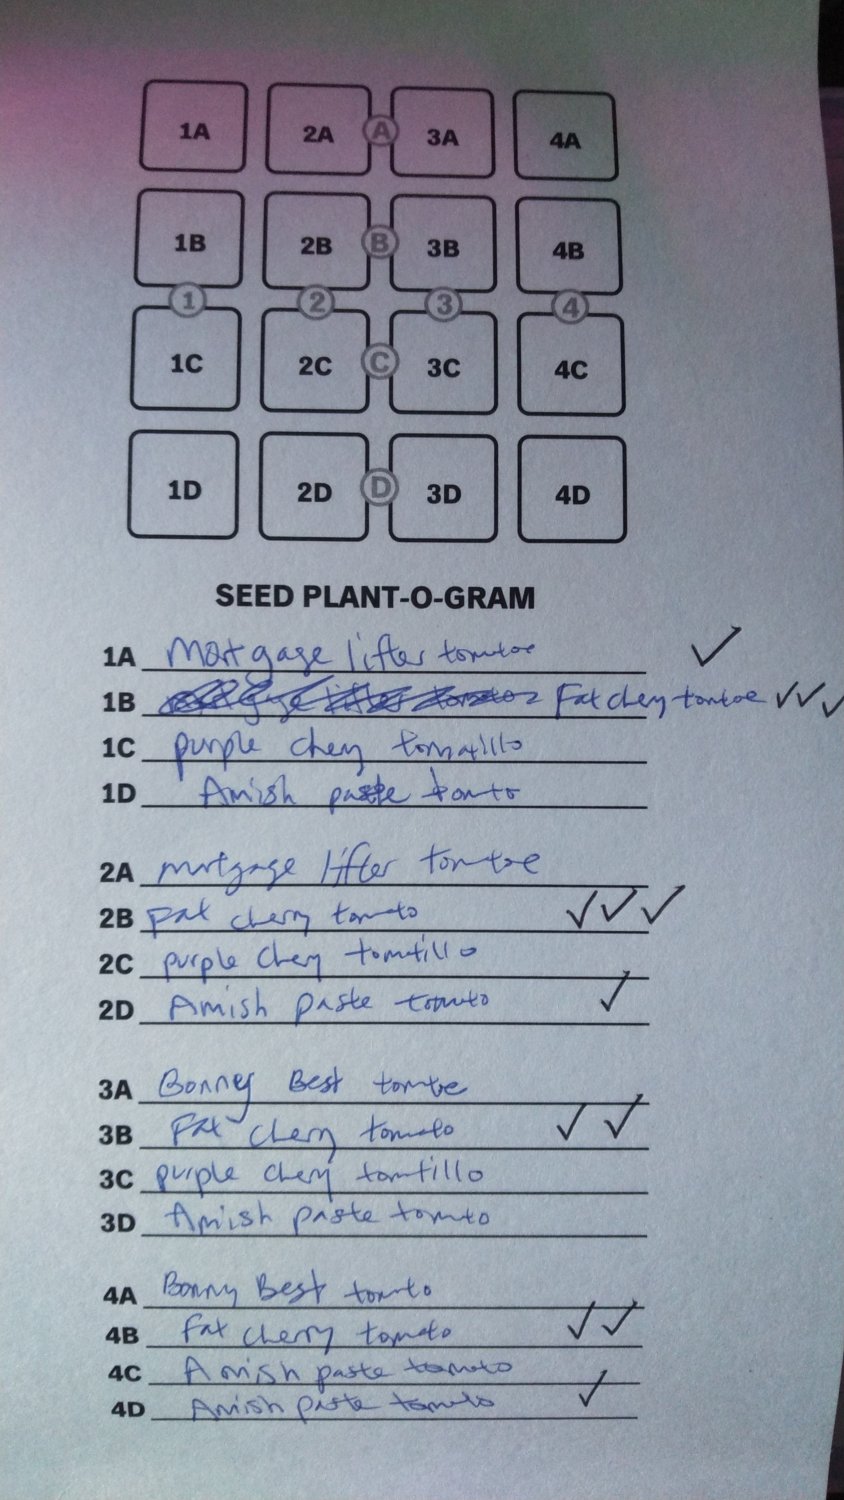 1A 2A A 3A 4A
1B 2B B 3B 4B
1 2 3 4
1C 2C C 3C 4C
1D 2D D 3D 4D
SEED PLANT-O-GRAM
1A Mortgage lifter tomtoe ✓
1B Fat chery tomtoe ✓✓✓
1C purple chery tomatillo
1D Amish paste tomto
2A mortgage lifter tomtoe
2B Fat cherry tomato ✓✓✓
2C purple chery tomtillo
2D Amish paste tomto ✓
3A Bonney Best tomtoe
3B Fat cherry tomato ✓✓
3C purple chery tomtillo
3D Amish paste tomto
4A Bonny Best tomto
4B Fat cherry tomato ✓✓
4C Amish paste tomato
4D Amish paste tomato ✓